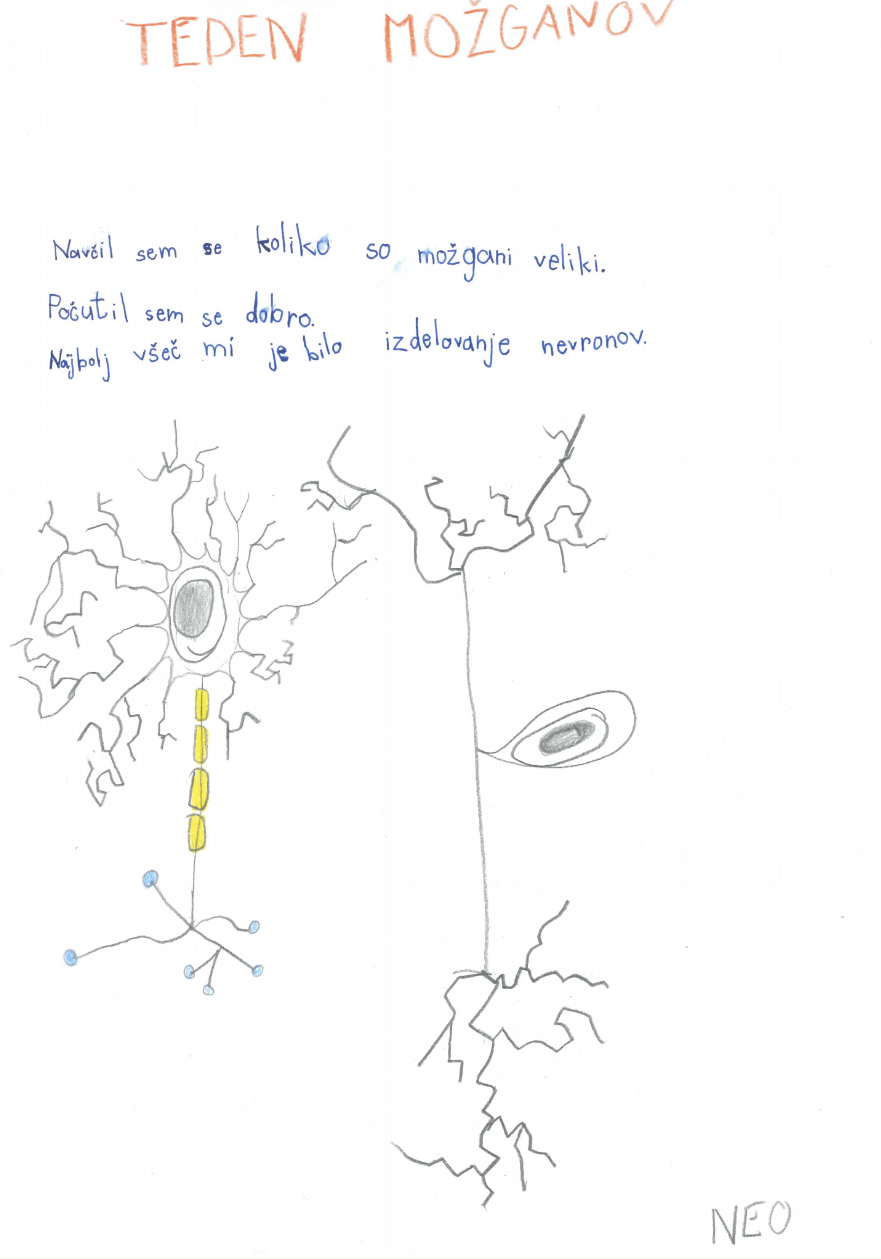 TEDEN MOŽGANOV
Navčil sem se koliko so možgani veliki.
Počutil sem se dobro.
Najbolj všeč mi je bilo izdelovanje nevronov.
NEO